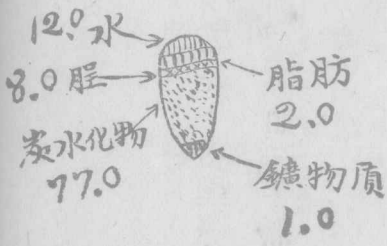 12.0水
8.0脭
炭水化物
77.0
脂肪
2.0
鑛物质
1.0